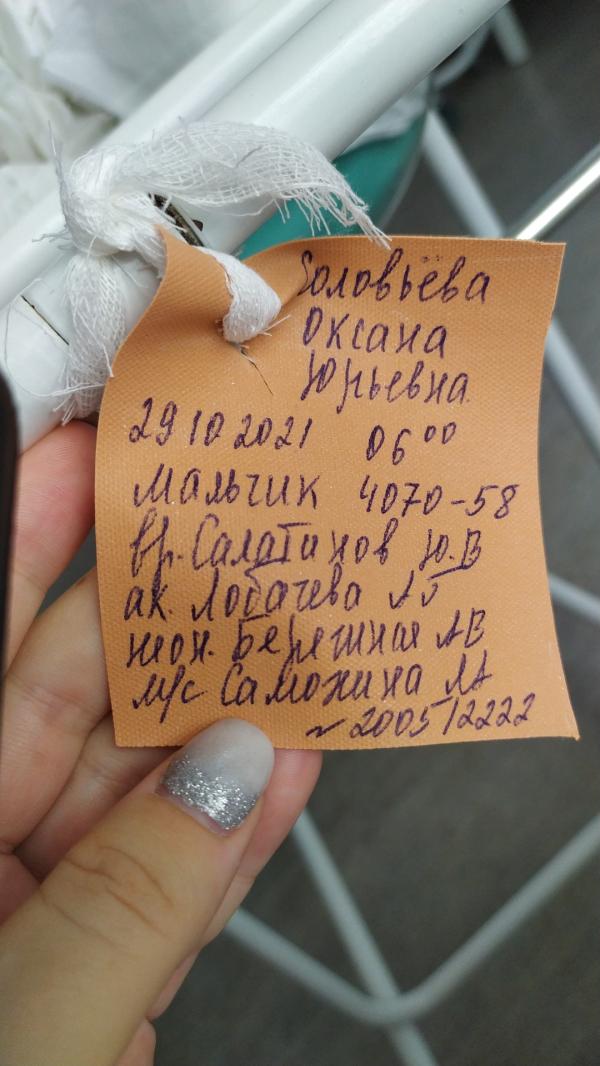 Соловьёва
Оксана
Юрьевна
29 10 2021 06 00
Мальчик 4070-58
вр. Салатинов Ю.В
ак. Лобачева АБ
неон. Бережная АВ
м/с Саможина ЛА
~ 2005/2222